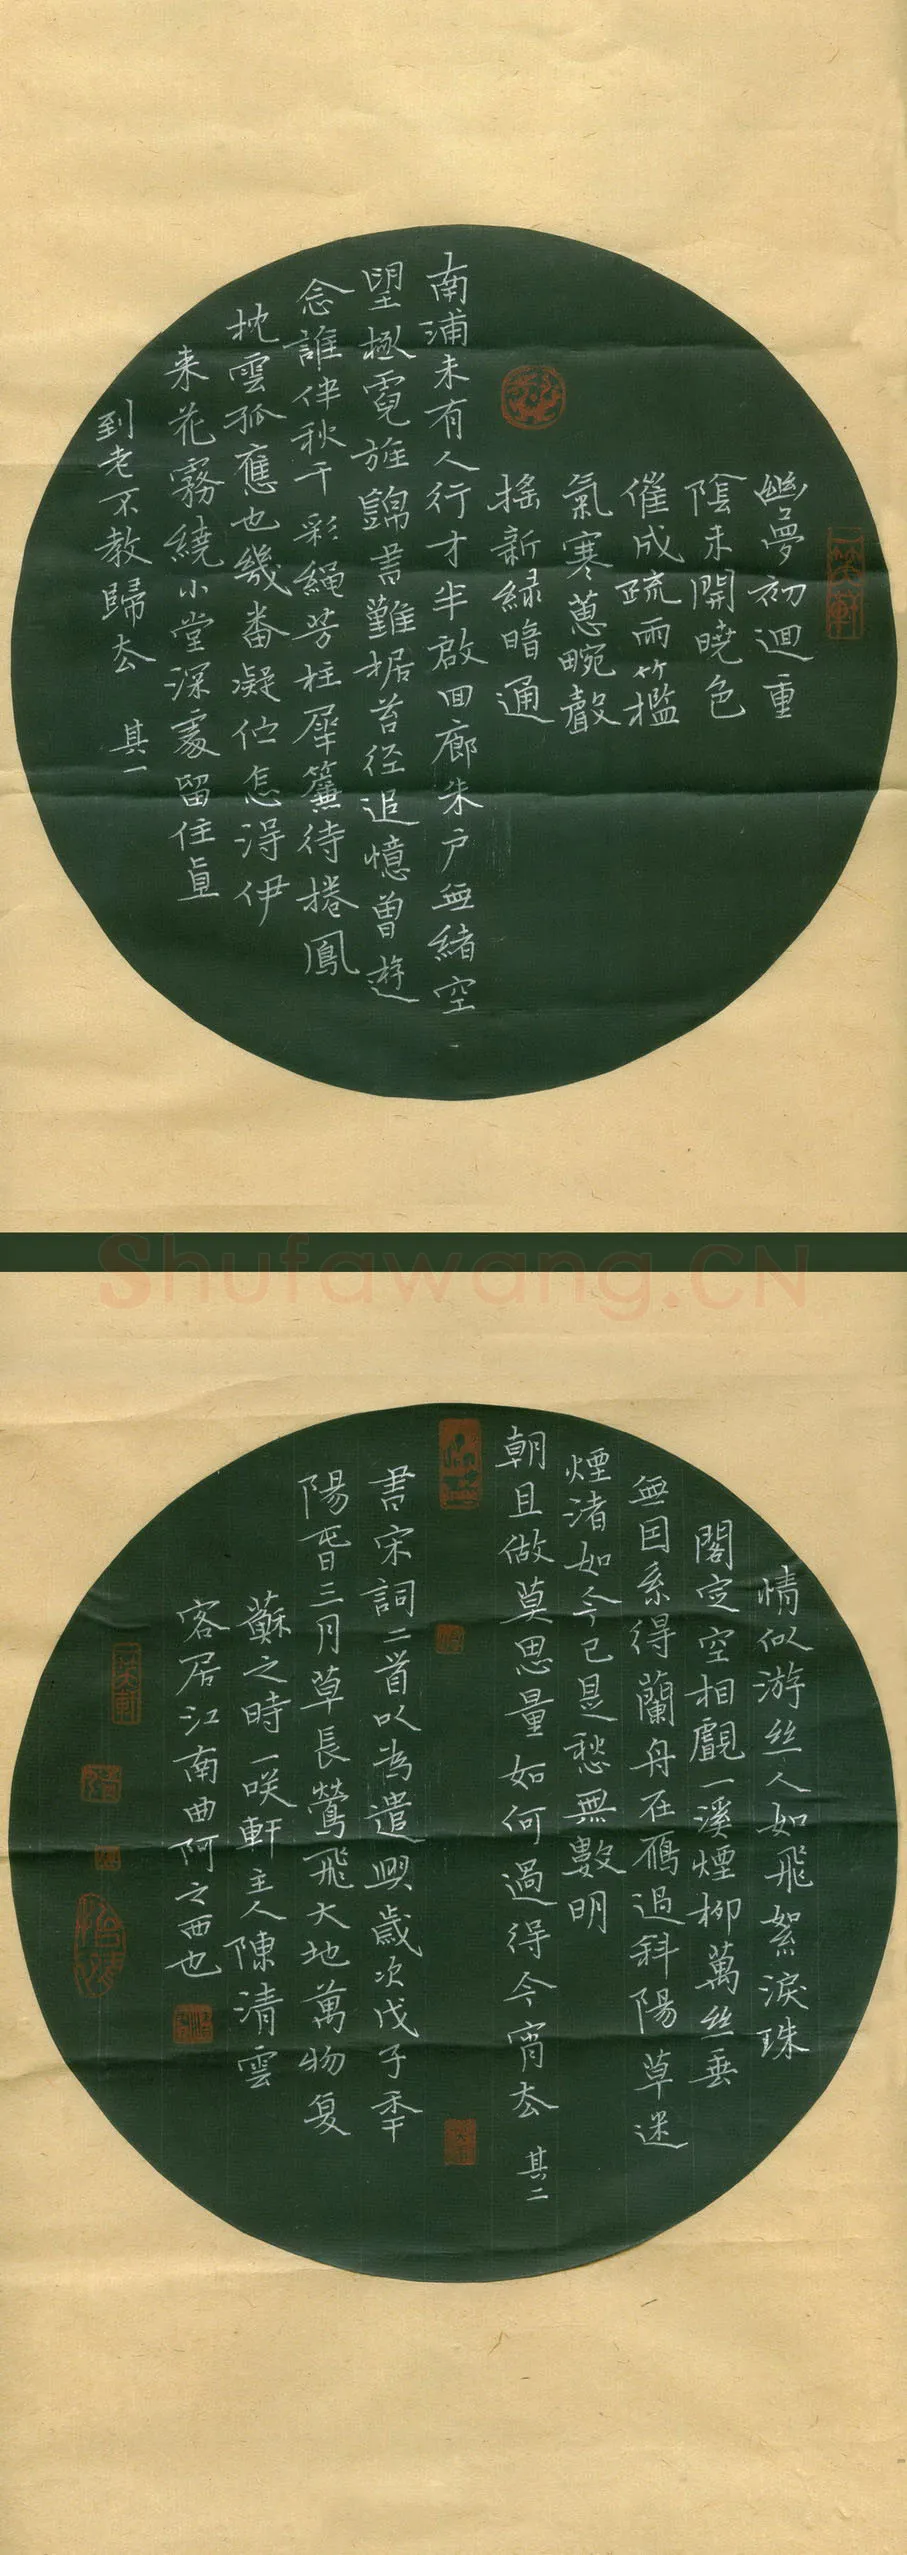 幽夢初迴重
陰未開曉色
催成疏雨竹檻
氣寒蕙畹聲
搖新緑暗通
南浦未有人行才半啟回廊朱户無緒空
望極霓旌錦書難据苔径追憶曽遊
念誰伴秋千彩縄芳柱犀簾待捲鳳
枕雲孤應也幾番凝伫怎得伊
来花霧繞小堂深處留住直
到老不教歸去
其一
Shufawang.CN
情似游丝人如飛絮淚珠
閣定空相覷一溪煙柳萬丝垂
無因系得蘭舟住鴈過斜陽草迷
煙渚如今已是愁無數明
朝且做莫思量如何過得今宵去
其二
書宋詞二首以為遣興歲次戊子年
陽春三月草長鶯飛大地萬物复
蘇之時一咲軒主人陳清雲
客居江南曲阿之西也